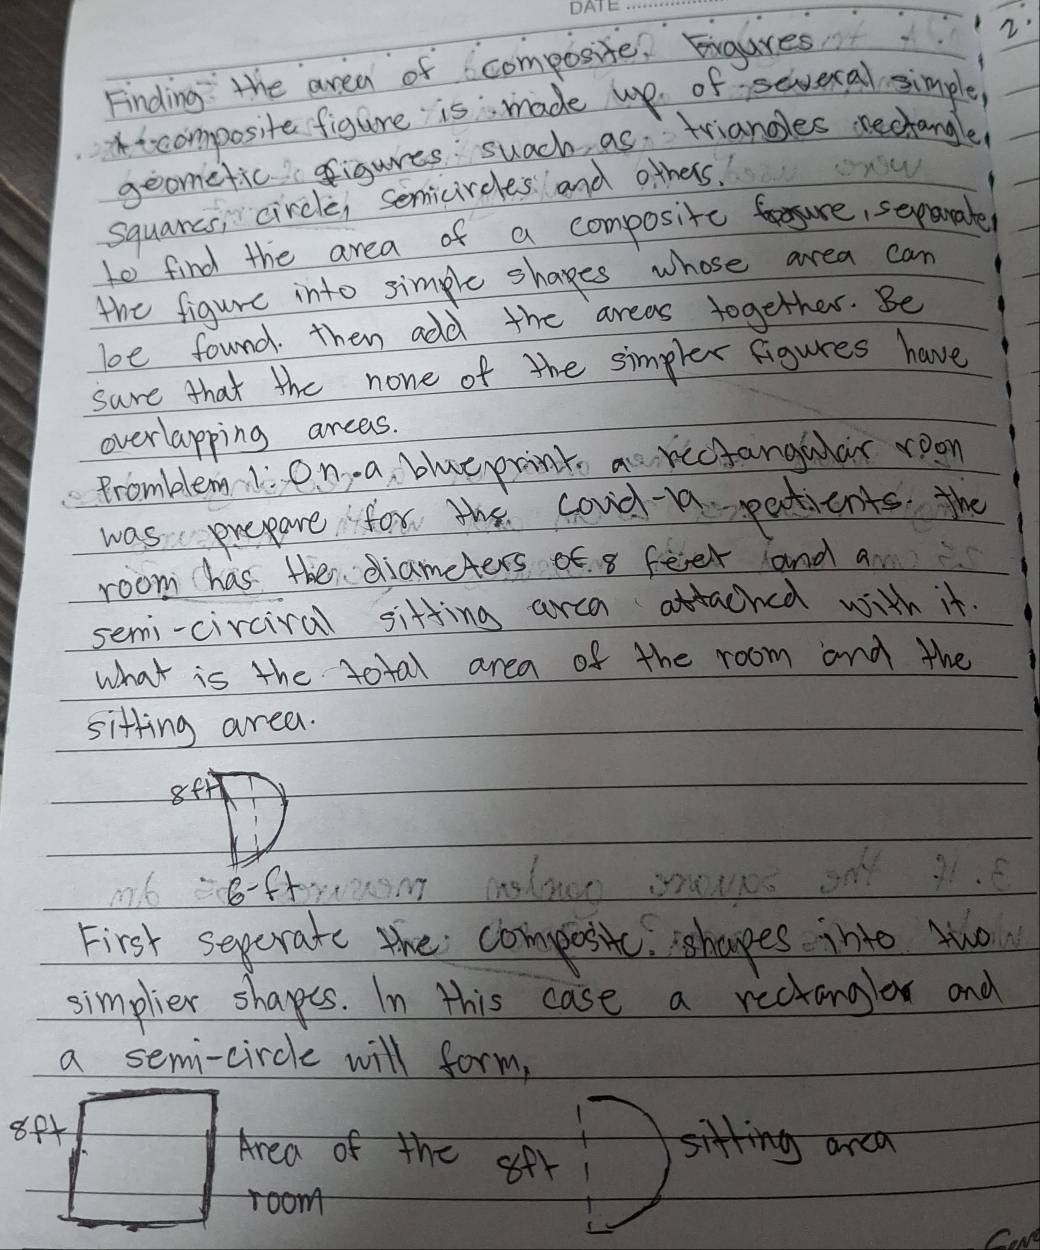 DATE
2.
Finding the area of composite Figures
A composite figure is made up of several simple,
geometic figures suach as triangles rectangle,
squares, circle, semicircles and others.
to find the area of a composite fogure, separate
the figure into simple shapes whose area can
be found. then add the areas together. Be
sure that the none of the simpler figures have
overlapping areas.
Promblem 1: On a blueprint a rectangular roon
was prepare for the covid-19 patients. the
room has the diameters of 8 feet and a
semi-circiral sitting area attached with it.
what is the total area of the room and the
sitting area.
8ft
6-ft
First seperate the composite shapes into two
simplier shapes. In this case a rectangler and
a semi-circle will form,
8ft
Area of the room
8ft
sitting area